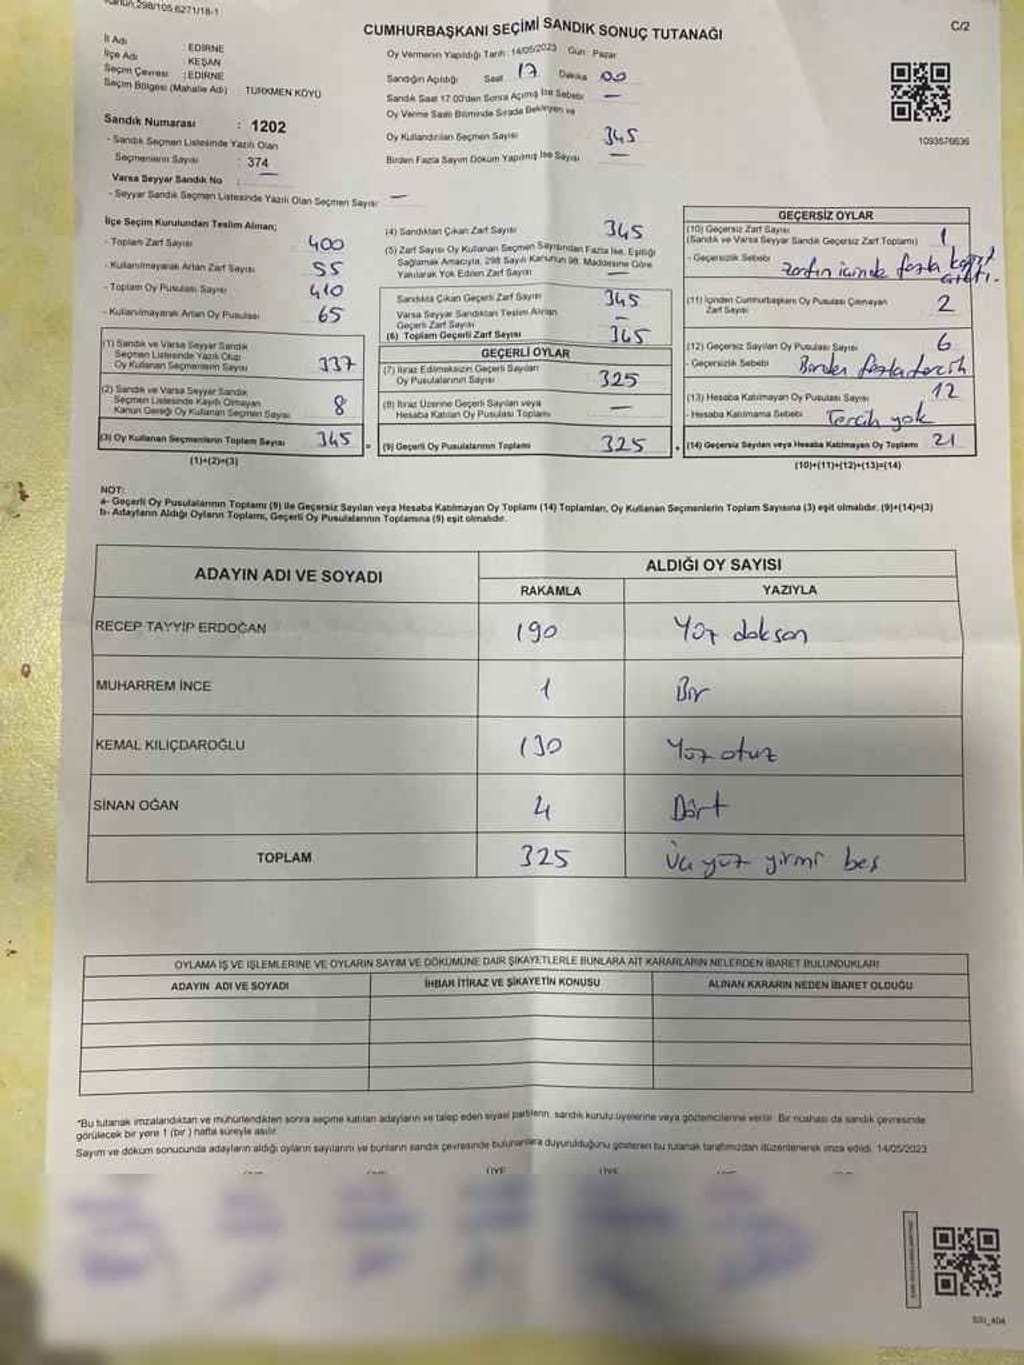 Kanun,298/105,6271/18-1
CUMHURBAŞKANI SEÇİMİ SANDIK SONUÇ TUTANAĞI
C/2
İl Adı : EDİRNE
İlçe Adı : KEŞAN
Seçim Çevresi : EDİRNE
Seçim Bölgesi (Mahalle Adı) TÜRKMEN KÖYÜ
Sandık Numarası : 1202
- Sandık Seçmen Listesinde Yazılı Olan
Seçmenlerin Sayısı : 374
Varsa Seyyar Sandık No —
- Seyyar Sandık Seçmen Listesinde Yazılı Olan Seçmen Sayısı —
Oy Vermenin Yapıldığı Tarih : 14/05/2023 Gün : Pazar
Sandığın Açıldığı Saat 17 Dakika 00
Sandık Saat 17:00'den Sonra Açılmış İse Sebebi —
Oy Verme Saati Bitiminde Sırada Bekleyen ve
Oy Kullandırılan Seçmen Sayısı 345
Birden Fazla Sayım Döküm Yapılmış İse Sayısı —
1093576636
İlçe Seçim Kurulundan Teslim Alınan;
- Toplam Zarf Sayısı 400
- Kullanılmayarak Artan Zarf Sayısı 55
- Toplam Oy Pusulası Sayısı 410
- Kullanılmayarak Artan Oy Pusulası 65
(1) Sandık ve Varsa Seyyar Sandık
Seçmen Listesinde Yazılı Olup
Oy Kullanan Seçmenlerin Sayısı 337
(2) Sandık ve Varsa Seyyar Sandık
Seçmen Listesinde Kayıtlı Olmayan
Kanun Gereği Oy Kullanan Seçmen Sayısı 8
(3) Oy Kullanan Seçmenlerin Toplam Sayısı 345 =
(1)+(2)=(3)
(4) Sandıktan Çıkan Zarf Sayısı 345
(5) Zarf Sayısı Oy Kullanan Seçmen Sayısından Fazla İse, Eşitliği
Sağlamak Amacıyla, 298 Sayılı Kanunun 98. Maddesine Göre
Yakılarak Yok Edilen Zarf Sayısı —
Sandıkta Çıkan Geçerli Zarf Sayısı 345
Varsa Seyyar Sandıktan Teslim Alınan
Geçerli Zarf Sayısı —
(6) Toplam Geçerli Zarf Sayısı 345
GEÇERLİ OYLAR
(7) İtiraz Edilmeksizin Geçerli Sayılan
Oy Pusulalarının Sayısı 325
(8) İtiraz Üzerine Geçerli Sayılan veya
Hesaba Katılan Oy Pusulası Toplamı —
(9) Geçerli Oy Pusulalarının Toplamı 325 +
GEÇERSİZ OYLAR
(10) Geçersiz Zarf Sayısı
(Sandık ve Varsa Seyyar Sandık Geçersiz Zarf Toplamı) 1
- Geçersizlik Sebebi zarfın içinde fazla
(11) İçinden Cumhurbaşkanı Oy Pusulası Çıkmayan
Zarf Sayısı 2
(12) Geçersiz Sayılan Oy Pusulası Sayısı 6
- Geçersizlik Sebebi Birden fazla tercih
(13) Hesaba Katılmayan Oy Pusulası Sayısı 12
- Hesaba Katılmama Sebebi Tercih yok
(14) Geçersiz Sayılan veya Hesaba Katılmayan Oy Toplamı 21
(10)+(11)+(12)+(13)=(14)
NOT:
a- Geçerli Oy Pusulalarının Toplamı (9) ile Geçersiz Sayılan veya Hesaba Katılmayan Oy Toplamı (14) Toplamları, Oy Kullanan Seçmenlerin Toplam Sayısına (3) eşit olmalıdır. (9)+(14)=(3)
b- Adayların Aldığı Oyların Toplamı, Geçerli Oy Pusulalarının Toplamına (9) eşit olmalıdır.
ADAYIN ADI VE SOYADI ALDIĞI OY SAYISI
RAKAMLA YAZIYLA
RECEP TAYYİP ERDOĞAN 190 Yüz doksan
MUHARREM İNCE 1 Bir
KEMAL KILIÇDAROĞLU 130 Yüz otuz
SİNAN OĞAN 4 Dört
TOPLAM 325 Üç yüz yirmi beş
OYLAMA İŞ VE İŞLEMLERİNE VE OYLARIN SAYIM VE DÖKÜMÜNE DAİR ŞİKAYETLERLE BUNLARA AİT KARARLARIN NELERDEN İBARET BULUNDUKLARI
ADAYIN ADI VE SOYADI İHBAR İTİRAZ VE ŞİKAYETİN KONUSU ALINAN KARARIN NEDEN İBARET OLDUĞU
*Bu tutanak imzalandıktan ve mühürlendikten sonra seçime katılan adayların ve talep eden siyasi partilerin, sandık kurulu üyelerine veya gözlemcilerine verilir. Bir nüshası da sandık çevresinde
görülecek bir yere 1 (bir) hafta süreyle asılır.
Sayım ve döküm sonucunda adayların aldığı oyların sayılarını ve bunların sandık çevresinde bulunanlara duyurulduğunu gösteren bu tutanak tarafımızdan düzenlenerek imza edildi. 14/05/2023
ÜYE ÜYE